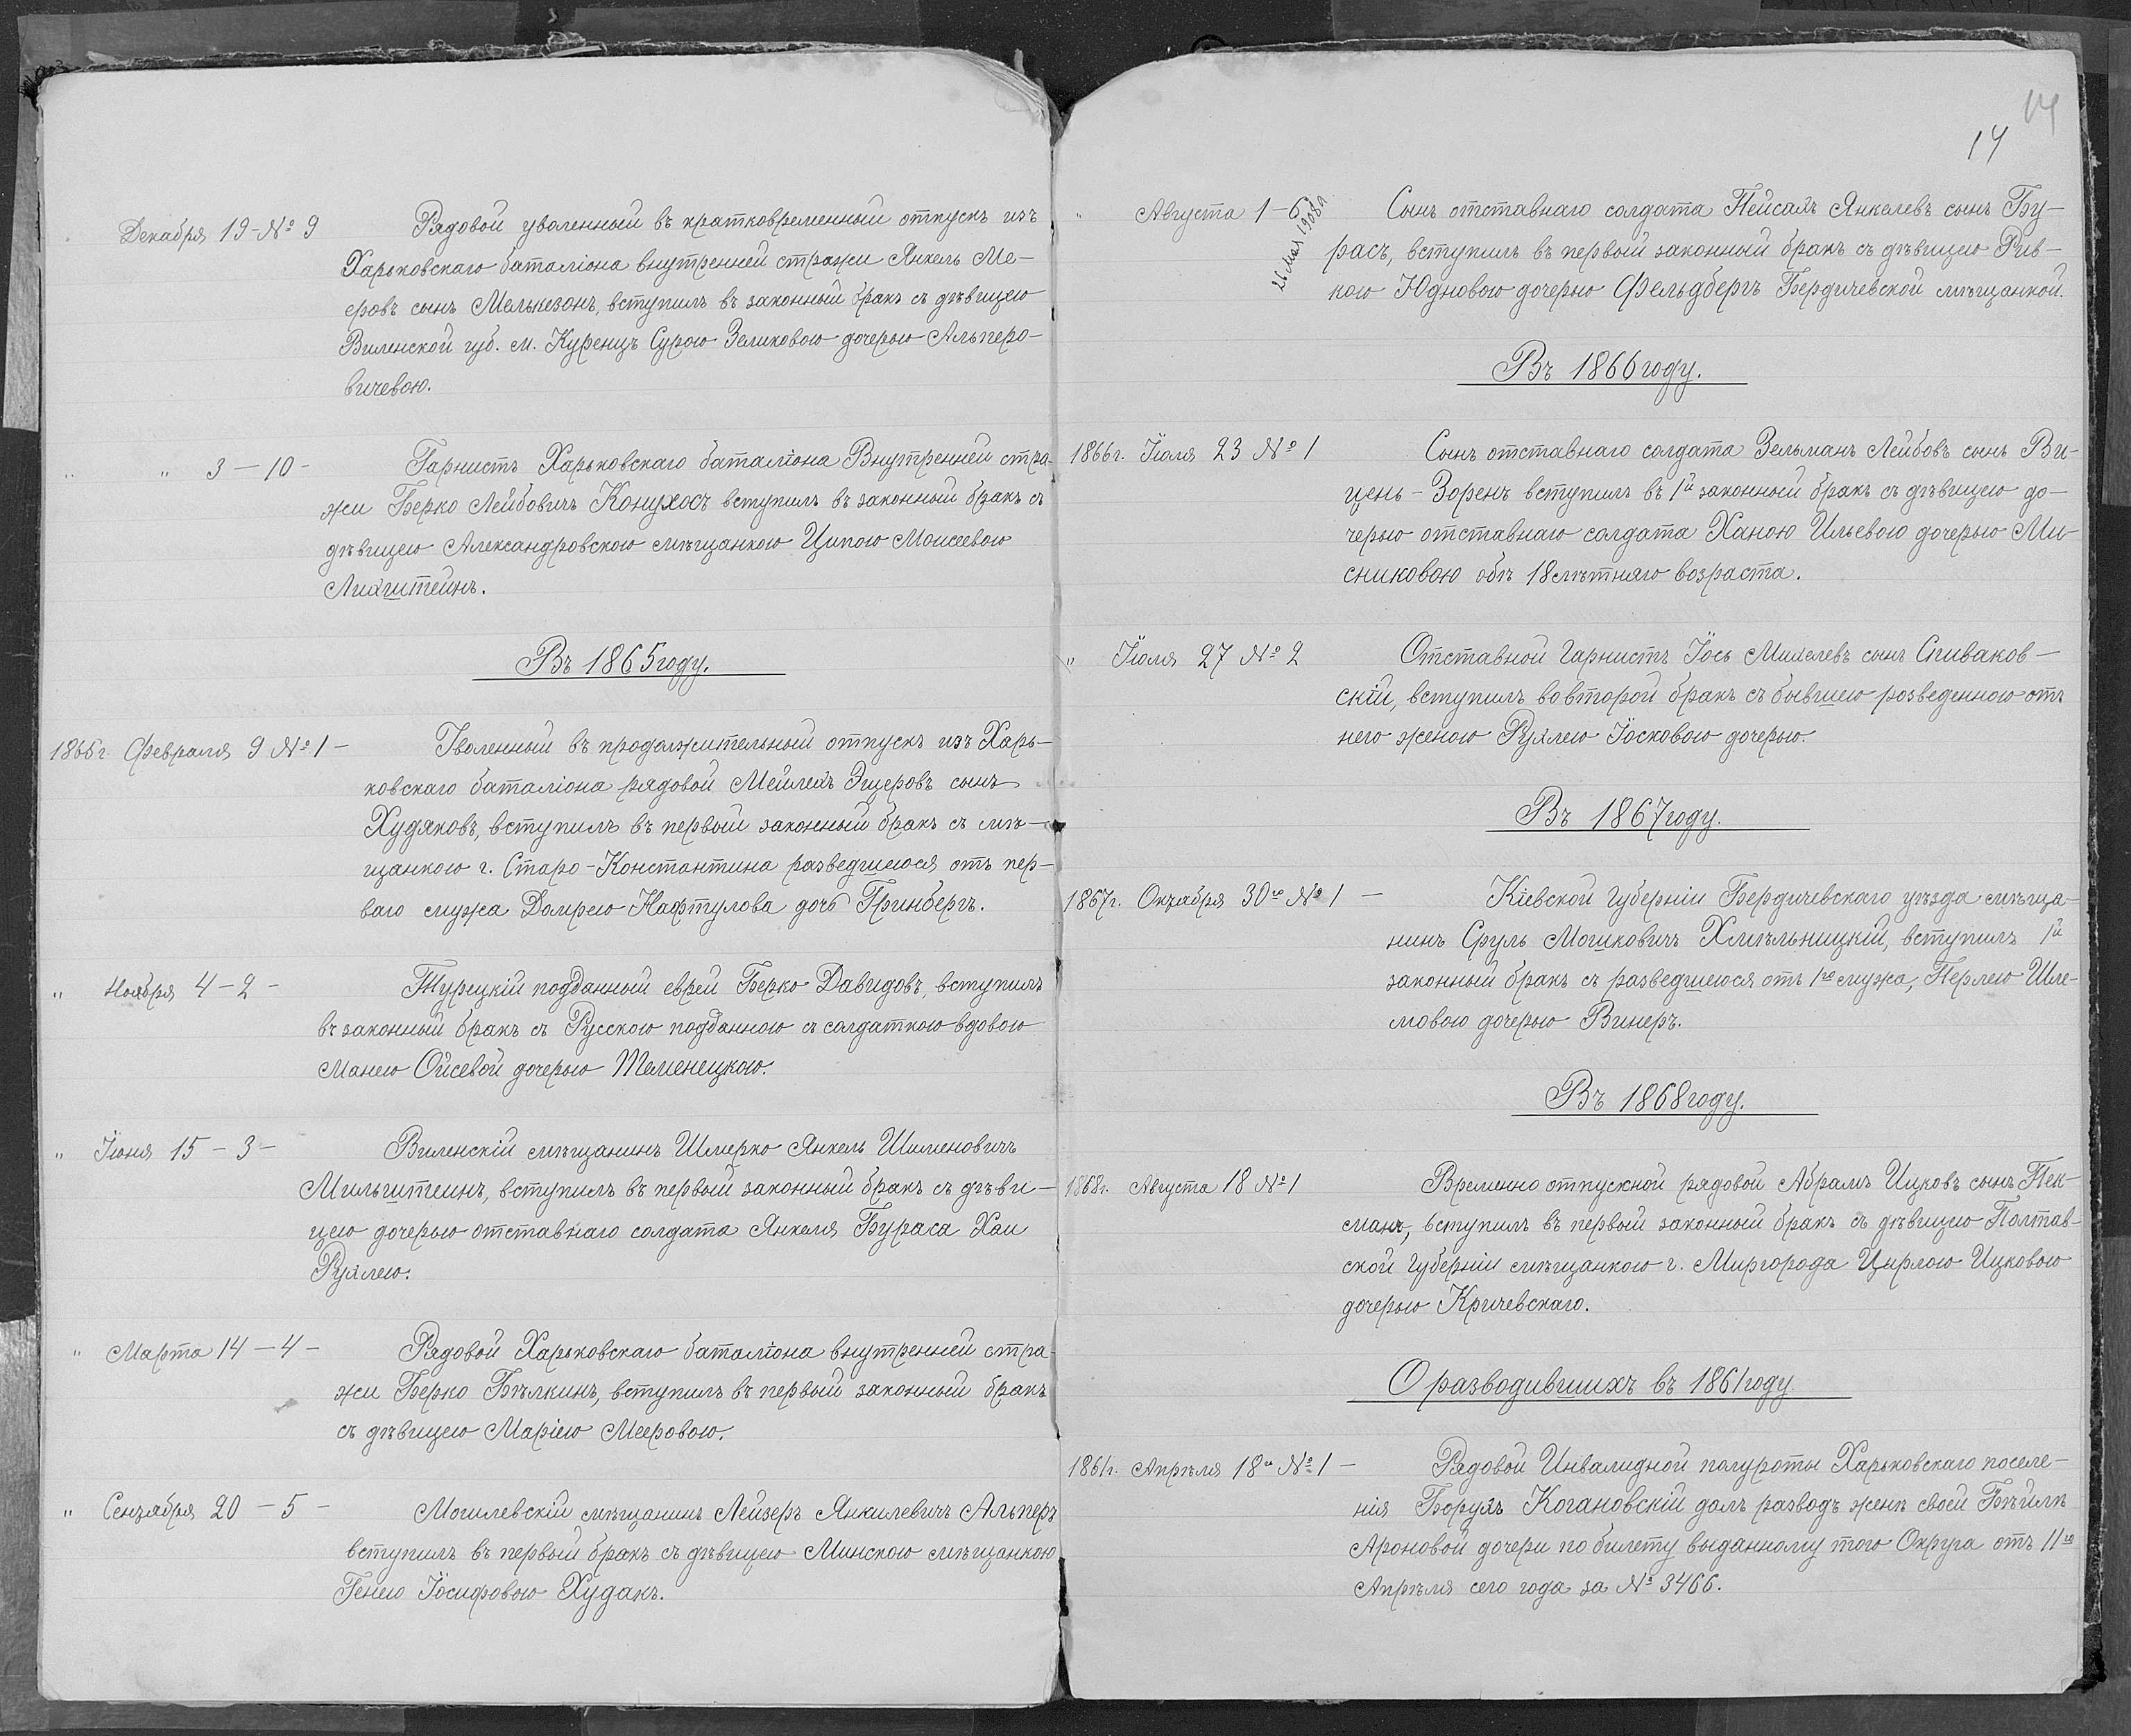 Декабря 19-№ 9 Рядовой уволенный въ кратковременный отпускъ изъ
Харьковскаго баталіона внутренней стражи Янкель Ме-
еровъ сынъ Мелькезонъ, вступилъ въ законный бракъ съ дѣвицею
Виленской губ. м. Куренцъ Сурою Зеликовою дочерью Альперо-
вичевою.
" " 3-10- Гарнистъ Харьковскаго баталіона Внутренней стра-
жи Берко Лейбовичъ Конухосъ вступилъ въ законный бракъ съ
дѣвицею Александровскою мѣщанкою Ципою Моисеевою
Лихштейнъ.
Въ 1865 году.
Февраля 9 №1- Уволенный въ продолжительный отпускъ изъ Харь-
ковскаго баталіона рядовой Мейлехъ сынъ
Худяковъ, вступилъ въ первый законный бракъ съ мѣ-
щанкою г. Старо-Константина разведшеюся отъ пер-
ваго мужа Домрею Нафтулова дочь Гринбергъ.
" Ноября 4-2- Турецкій подданный еврей Берко Давидовъ, вступилъ
въ законный бракъ съ Русскою подданною съ салдаткою вдовою
Манею Ойсевой дочерью Теменецкою.
" Іюня 15-3- Виленскій мѣщанинъ Шмерко Янкель Шименовичъ
Мильштейнъ, вступилъ въ первый законный бракъ съ дѣви-
цею дочерью отставнаго солдата Янкеля Бураса Хаи
Рухлею.
" Марта 14-4- Рядовой Харьковскаго баталіона внутренней стра-
жи Берко Бѣлкинъ, вступилъ въ первый законный бракъ
съ дѣвицею Маріею Мееровою.
" Сентября 20-5- Могилевскій мѣщанинъ Лейзеръ Янкилевичъ Альперъ
вступилъ въ первый бракъ съ дѣвицею Минскою мѣщанкою
Генею Іосифовою Худакъ.
14
14
" Августа 1-6 Сынъ отставнаго солдата Пейсахъ Янкелевъ сынъ Бу-
26 Мая 1908г.
расъ, вступилъ въ первый законный бракъ съ дѣвицею Рив-
кою Юдновою дочерью Фельдбергъ Бердичевской мѣщанкой.
Въ 1866 году.
1866г. Іюля 23 № 1 Сынъ отставнаго солдата Зельманъ Лейбовъ сынъ Ви-
цень-Зоренъ вступилъ въ 1й законный бракъ съ дѣвицею до-
черью отставнаго солдата Ханою Ильевою дочерью Ми-
сниковою объ 18 лѣтняго возраста.
" Іюля 27 № 2 Отставной Гарнистъ Іось Михелевъ сынъ Спиваков-
скій, вступилъ во второй бракъ съ бывшею розведенною отъ
него женою Рухлею Іосковою дочерью.
Въ 1867 году.
1867г. Октября 30го № 1 - Кіевской Губерніи Бердичевскаго уѣзда мѣща-
нинъ Сруль Мошковичъ Хмѣльницкій, вступилъ 1й
законный бракъ съ разведшеюся отъ 1го мужа, Перлею Шле-
мовою дочерью Винеръ.
Въ 1868 году.
1868г. Августа 18 №1 Временно отпускной рядовой Абрамъ Ицковъ сынъ Пек-
манъ, вступилъ въ первый законный бракъ съ дѣвицею Полтав-
ской Губерніи мѣщанкою г. Миргорода Цирлою Ицковою
дочерью Кричевскаго.
О разводившихъ въ 1861 году.
1861г. Апрѣля 18го №1 - Рядовой Инвалидной полуроты Харьковскаго поселе-
нія Борухъ Когановскій далъ разводъ женѣ своей Бѣйлѣ
Ароновой дочери по билету выданному того Округа отъ 11го
Апрѣля сего года за № 3466.